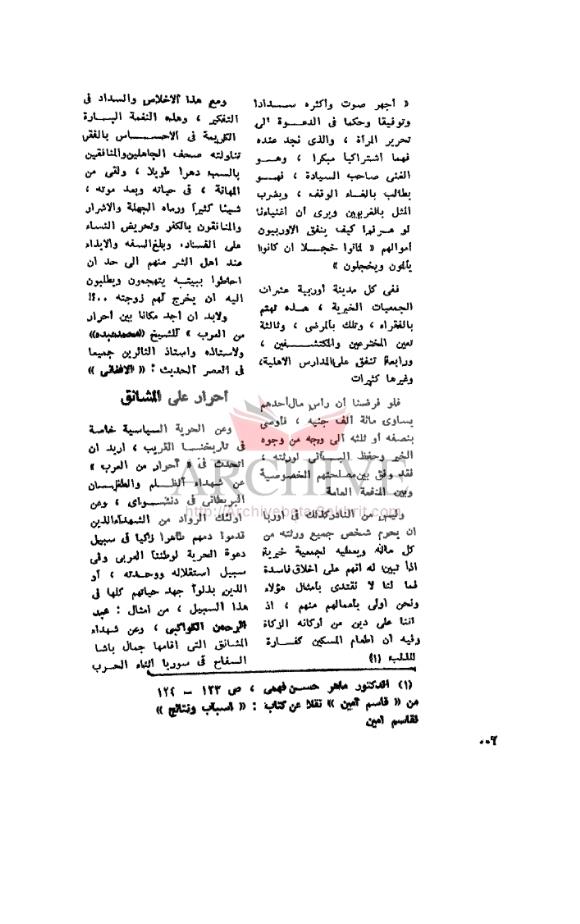 « أجهر صوت وأكثره سدادا
وتوفيقا وحكما فى الدعوة الى
تحرير المرأة ، والذى نجد عنده
فهما اشتراكيا مبكرا ، وهو
الغنى صاحب السيادة ، فهو
يطالب بالغاء الوقف ، ويضرب
المثل بالغربيين ويرى أن أغنياءنا
لو عرفوا كيف ينفق الاوربيون
أموالهم « لماتوا خجلا ان كانوا
يألمون ويخجلون »
ففى كل مدينة أوربية عشرات
الجمعيات الخيرية ، هذه تهتم
بالفقراء ، وتلك بالمرضى ، وثالثة
تعين المخترعين والمكتشفين ،
ورابعة تنفق على المدارس الاهلية،
وغيرها كثيرات
فلو فرضنا أن رأس مال أحدهم
يساوى مائة ألف جنيه ، فأوصى
بنصفه أو ثلثه الى وجه من وجوه
الخير وحفظ الباقى لورثته ،
فقد وفق بين مصلحتهم الخصوصية
وبين المنفعة العامة
وليس من النادر كذلك فى أوربا
ان يحرم شخص جميع ورثته من
كل ماله ويعطيه لجمعية خيرية
اذا تبين له انهم على اخلاق فاسدة
فما لنا لا نقتدى بأمثال هؤلاء
ونحن أولى بأعمالهم منهم ، اذ
اننا على دين من أركانه الزكاة
وفيه ان اطعام المسكين كفارة
للذنب (١)
ومع هذا الاخلاص والسداد فى
التفكير ، وهذه النغمة البارة
الكريمة فى الاحساس بالفقر
تناولته صحف الجاهلين والمنافقين
بالسب دهرا طويلا ، ولقى من
المهانة ، فى حياته وبعد موته ،
شيئا كثيرا ورماه الجهلة والاشرار
والمنافقون بالكفر وتحريض النساء
على الفساد، وبلغ السفه والايذاء
عند اهل الشر منهم الى حد ان
احاطوا ببيته يتهجمون ويطلبون
اليه ان يخرج لهم زوجته ٠٠؟!
ولابد ان أجد مكانا بين أحرار
من العرب » للشيخ «محمد عبده»
ولاستاذه واستاذ الثائرين جميعا
فى العصر الحديث : « الافغانى »
أحرار على المشانق
وعن الحرية السياسية خاصة
فى تاريخنا القريب ، اريد ان
اتحدث فى « أحرار من العرب »
عن شهداء الظلم والطغيان
البريطانى فى دنشواى ، وعن
أولئك الرواد من الشهداء الذين
قدموا دمهم طاهرا زكيا فى سبيل
دعوة الحرية لوطننا العربى وفى
سبيل استقلاله ووحدته ، أو
الذين بذلوا جهد حياتهم كلها فى
هذا السبيل ، من امثال : عبد
الرحمن الكواكبى ، وعن شهداء
المشانق التى اقامها جمال باشا
السفاح فى سوريا اثناء الحرب
(١) الدكتور ماهر حسن فهمى ، ص ١٢٣ – ١٢٤
من « قاسم أمين » نقلا عن كتاب : « اسباب ونتائج »
لقاسم أمين
٠٠٦
ARCHIVE
http://Archivebeta.Sakhrit.com